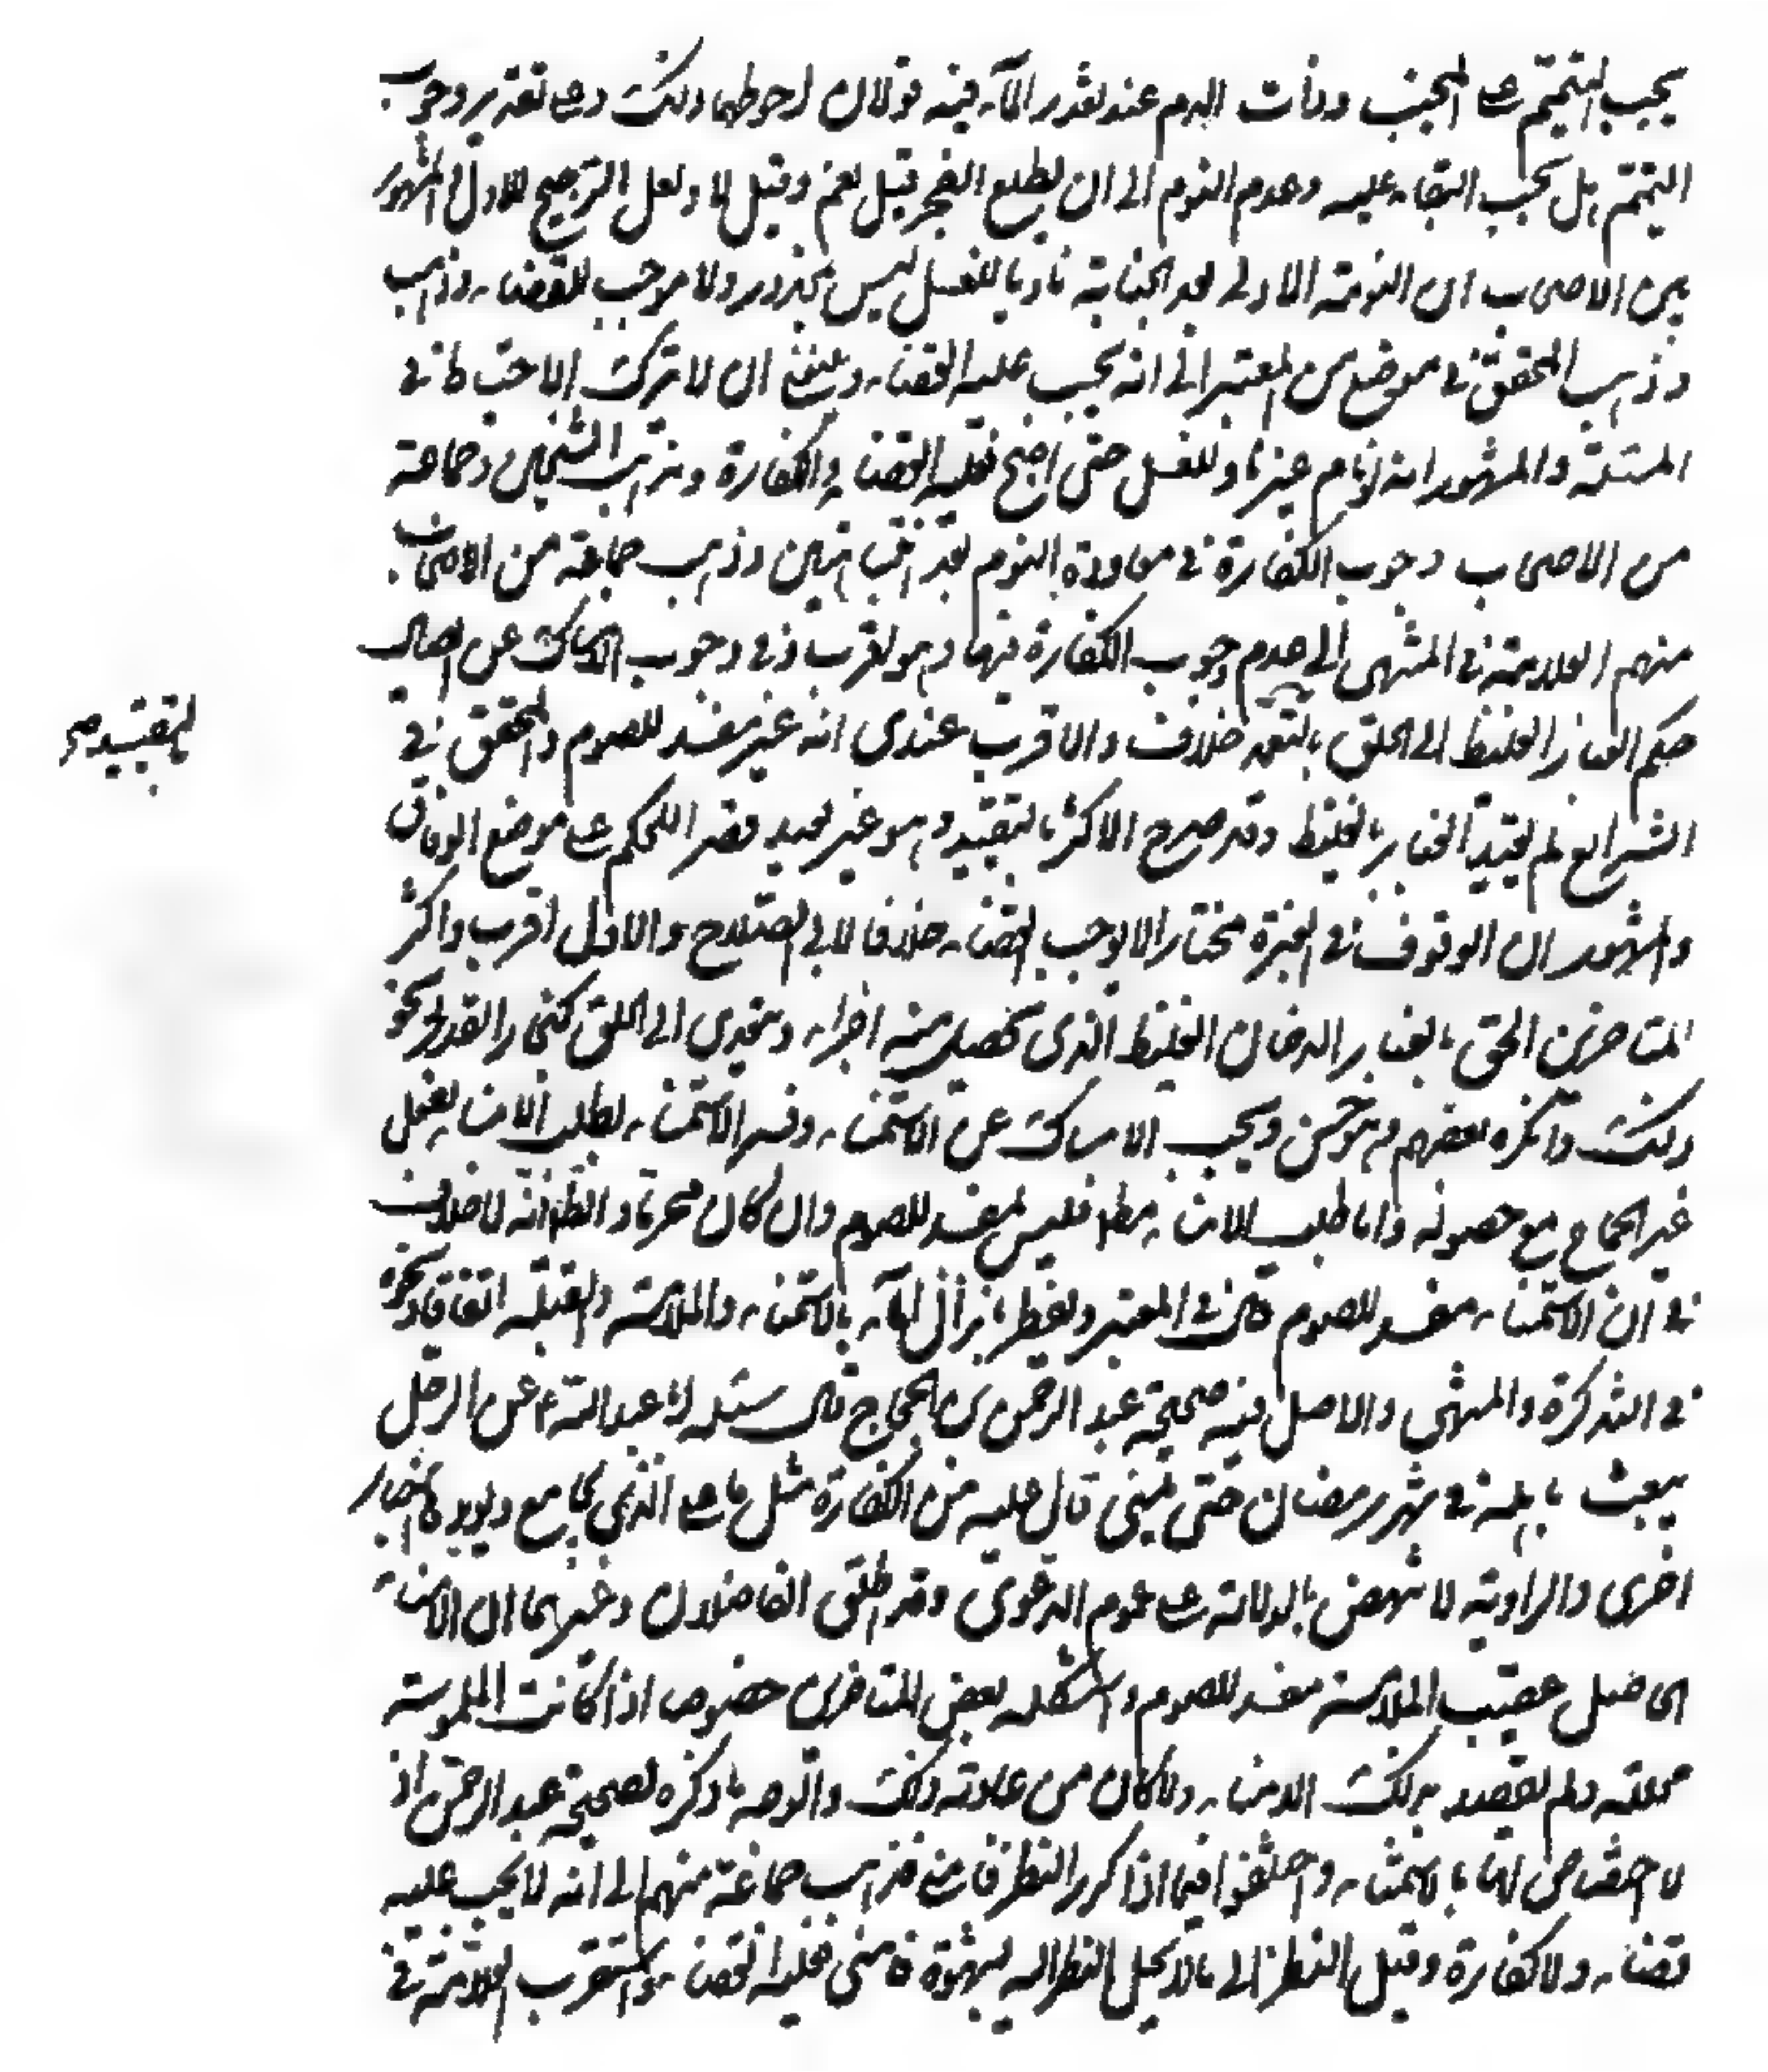 يجب التيمم على المجنب وذات الدم عند تعذر الماء فيه قولان احوطهما ذلك وعلى تقدير وجوب
التيمم هل يجب البقاء عليه وعدم النوم الى ان يطلع الفجر قيل نعم وقيل لا ولعل الترجيح للاول المشهور
بين الاصحاب ان النومة الاولى بعد الجنابة ناويا للغسل ليس بمحذور ولا موجب للقضاء وذهب
وذهب المحقق في موضع من المعتبر الى انه يجب عليه القضاء وينبغي ان لا يترك الاحتياط في
المسئلة والمشهور انه لو نام غير ناو للغسل حتى اصبح فعليه القضاء والكفارة ومذهب الشيخين وجماعة
من الاصحاب وجوب الكفارة في معاودة النوم بعد انتباهتين وذهب جماعة من الاصحاب
منهم العلامة في المنتهى الى عدم وجوب الكفارة فيها وهو اقرب وفي وجوب الامساك عن ايصال
حكم الغبار الغليظ الى الحلق بالتعمد خلاف والاقرب عندي انه غير مفسد للصوم والمحقق في
الشرايع لم يقيد الغبار بالغليظ وقد صرح الاكثر بالتقييد وهو غير بعيد قصر اللحكم على موضع الوفاق
بالتقييد صح
والمشهور ان الوقوف في الغبرة مختارا لا يوجب القضاء خلافا لابي الصلاح والاول اقرب واكثر
المتاخرين الحق بالغبار الدخان الغليظ الذي يحصل منه اجزاء ويتعدى الى الحلق كبخار القدر ونحو
ذلك وانكره بعضهم وهو حسن ويجب الامساك عن الاستمناء وفسر الاستمناء بطلب الامناء بفعل
غير الجماع مع حصوله واما طلب الامناء مطلقا فليس بمفسد للصوم وان كان محرما والظ انه لا خلاف
في ان الاستمناء مفسد للصوم قال في المعتبر ويفطر بانزال الماء بالاستمناء والملامسة والقبلة اتفاقا ونحوه
في التذكرة والمنتهى والاصل فيه صحيحة عبد الرحمن بن الحجاج قال سئلت ابا عبد الله ع عن الرجل
يعبث باهله في شهر رمضان حتى يمني قال عليه من الكفارة مثل ما على الذي يجامع ويؤيدها اخبار
اخرى والراوية لا تنهض بالدلالة على عموم الدعوى وقد اطلق الفاضلان وغيرهما ان الامناء
الحاصل عقيب الملامسة مفسد للصوم واستشكله بعض المتاخرين خصوصا اذا كانت الملموسة
محللته ولم يقصد بذلك الامناء ولا كان من عادته ذلك والوجه ما ذكره لصحيحة عبد الرحمن اذ
لا اختصاص لها بالاستمناء واختلفوا فيما اذا كرر النظر فامنى فذهب جماعة منهم الى انه لا يجب عليه
قضاء ولا كفارة وقيل النظر الى ما لا يحل النظر اليه بشهوة فامنى فعليه القضاء واستقرب العلامة في